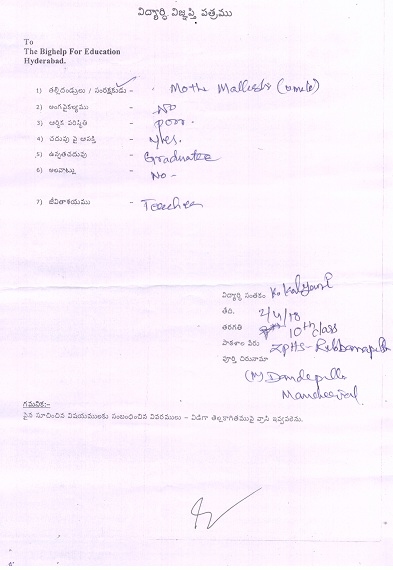 విద్యార్థి విజ్ఞప్తి పత్రము
To
The Bighelp For Education
Hyderabad.
1) తల్లిదండ్రులు / సంరక్షకుడు - Mothe
2) అంగవైకల్యము - NO
3) ఆర్థిక పరిస్థితి - poor.
4) చదువు పై ఆసక్తి - Yes.
5) ఉన్నతచదువు - Graduate
6) అలవాట్లు - No -
7) జీవితాశయము - Teacher
విద్యార్థి సంతకం K. Kalyani
తేది. 2/4/18
తరగతి 10th class
పాఠశాల పేరు ZPHS-
పూర్తి చిరునామా
(M) Dandepalli
Mancherial
గమనిక:-
పైన సూచించిన విషయములకు సంబంధించిన వివరములు - విడిగా తెల్లకాగితముపై వ్రాసి ఇవ్వవలెను.